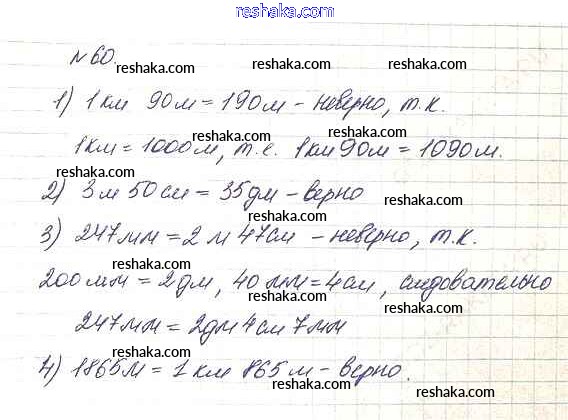 www.reshaka.ru
№60.
reshaka.com
reshaka.com
1) 1 км 90 м = 190 м - неверно, т.к.
reshaka.com reshaka.com
1км = 1000м, т.е. 1км 90м = 1090 м.
reshaka.com
2) 3 м 50 см = 35 дм - верно
reshaka.com reshaka.com
3) 247 мм = 2 м 47 см - неверно, т.к.
reshaka.com reshaka.com
200 мм = 2 дм, 40 мм = 4 см, следовательно
reshaka.com reshaka.com
247 мм = 2дм 4 см 7 мм
reshaka.com reshaka.com
4) 1865 м = 1 км 865 м - верно.
reshaka.com reshaka.com